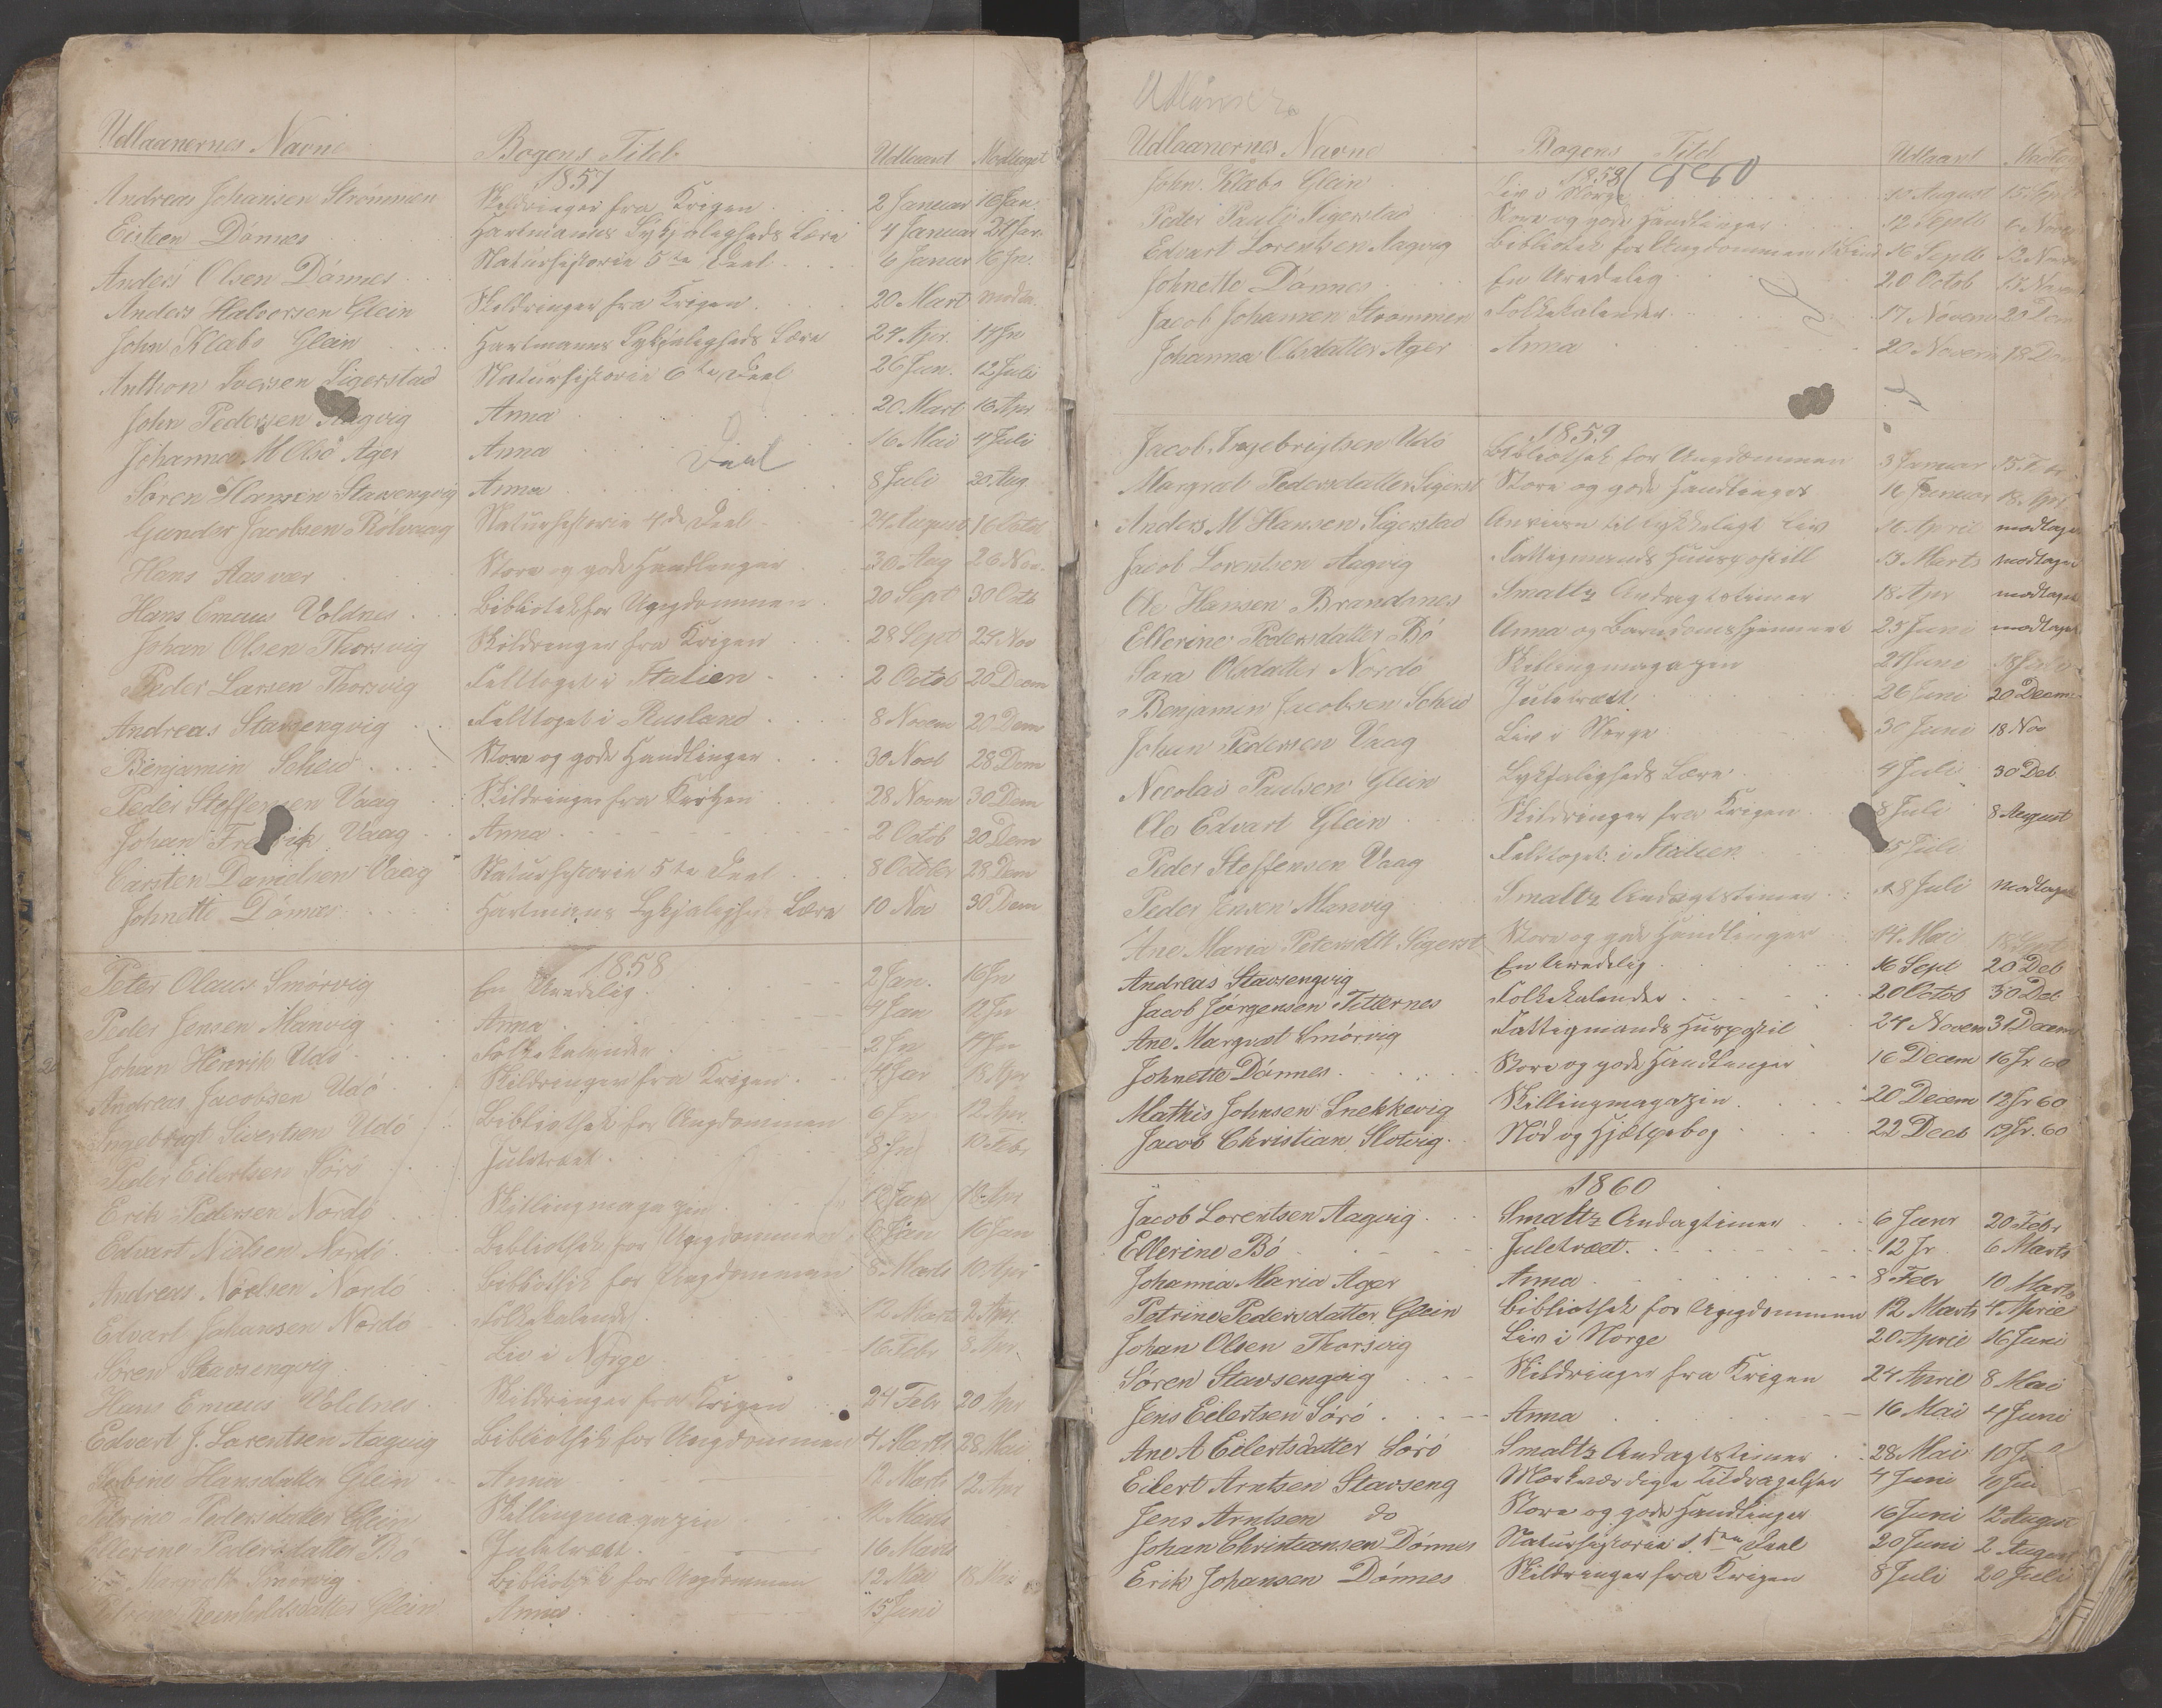 Udlaanernes Navne Bogens Titel Udlaant Modtaget
1857
Andreas Johansen Strømmen Skildringer fra Krigen 2 Januar 16 Jan.
Eistien Dønnes Hartmanns Lyksalegheds Lære 4 Januar 24 Jan.
Anders Olsen Dønnes Naturhistorie 5te Deel 6 Januar
Anders Halvorsen Glein Skildringer fra Krigen 20 Mart
John Klæbo Glein Hartmanns Lyksaligheds Lære 24 Apr.
Anthon Iversen Sigerstad Naturhistorie 6te Deel 26 Jun. 12 Juli
John Pedersen Aagvig Anna 20 Mart 16 Apr
Johanna M Olsd Ager Anna 16 Mai 4 Juli
Deel
Søren Hansen Stavsengvig Anna 8 Juli 20 Aug
Gunder Jacobsen Rølvaag Naturhistorie 4de Deel 24 August 16 Octob
Hans Aasvær Store og gode Handlinger 30 Aug 26 Nov.
Hans Emaus Voldnes Bibliotek for Ungdommen 20 Sept 30 Octb
Johan Olsen Thorsvig Skildringer fra Krigen 28 Sept 24 Nov
Peder Larsen Thorsvig Felttoget i Italien 2 Octob 20 Decm
Andreas Stavsengvig Felttoget i Rusland 8 Novem 20 Dem
Benjamin Scheid Store og gode Handlinger 30 Novb 28 Dem
Peder Steffensen Vaag Skildringer fra Krigen 28 Novm 30 Dem
Johan Fredrik Vaag Anna 2 Octob 20 Dem
Carsten Danielsen Vaag Naturhistorie 5te Deel 8 October 28 Dem
Johnette Dønnes Hartmans Lyksaligheds Lære 10 Nov 30 Dem
1858
Peter Olaus Smørvig En Anedelig 2 Jan. 16 Jn
Peder Jensen Manvig Anna 4 Jan 12 Jn
Johan Hinrik Udø Folkekalender 2 Jn 17 Jn
Andreas Jacobsen Udø Skildringer fra Krigen 4 Jar 18 Apr
Ingebrigt Sivertsen Udø Bibliothek for Ungdommen 6 Jn 12 Apr
Peder Eilertsen Sørø Juletræet 8 Jn 10 Febr
Erik Pedersen Nordø Skillingmagazin 12 Jan 18 Apr
Edvart Nielsen Nordø Bibliothek for Ungdommen 6 Jan 16 Jan
Andreas Nielsen Nordø Bibliothek for Ungdommen 8 Marts 10 Apr
Edvart Johansen Nordø Folkekalender 12 Marts 2 Apr
Søren Stavsengvig Liv i Norge 16 Febr 8 Apr
Hans Emaus Voldnes Skildringer fra Krigen 24 Febr 20 Apr
Edvart J. Lorentsen Aagvig Bibliothek for Ungdommen 4 Marts 28 Mai
Hansdatter Glein Anna 12 Marts 12 Apr
Petrine Pedersdatter Glein Skillingmagazin 12 Marts
Ellerine Pedersdatter Bø Juletræet 16 Marts
Smørvig Bibliothek for Ungdommen 12 Mai
Petrine Reinholdsdatter Glein Anna 15 Juni
Udlaanernes Navne Bogens Titel Udlaant
1858
John Klæbo Glein Liv i Norge 10 August 15 Sept
Peder Paulj. Sigerstad Store og gode Handlinger 12 Septb 6 Novr
Edvart Lorentsen Aagvig Bibliothek for Ungdommen 16 Septb 12 Novm
Johnette Dønnes En Anedelig 20 Octob 15 Novm
Jacob Johansen Strømmen Folkekalender 17 Novem 20 Dem
Johanna Olsdatter Ager Anna 20 Novem 18 Dem
1859
Jacob Ingebrigtsen Udø Bibliothek for Ungdommen 3 Januar
Margret Pedersdatter Sigerst Store og gode Handlinger 16 Januar 18 Apr
Anders M Hansen Sigerstad Anviisn til lykkeligt Liv 16 April modtaget
Jacob Lorentsen Aagvig Fattigmands Huuspostill 13 Marts modtaget
Ole Hansen Brandsnes Smaltz Andagtstimer 18 Apr modtaget
Ellerine Pedersdatter Bø Anna og Barndomshjemmet 25 Juni modtaget
Sara Olsdatter Nordø Skillingmagazin 24 Juni
Benjamin Jacobsen Scheid Juletræet 26 Juni 20 Decem
Johan Pedersen Vaag Liv i Norge 30 Juni 18 Nov
Necolai Paulsen Glein Lyksaligheds Lære 4 Juli 30 Deb
Ole Edvart Glein Skildringer fra Krigen 8 Juli 8 August
Peder Steffensen Vaag Felttoget i Italien 15 Juli
Peder Jensen Manvig Smaltz Andagtstimer 18 Juli modtaget
Ane Maria Petersdtt Sigerst Store og gode Handlinger 14 Mai
Andreas Stavsengvig En Anedelig 16 Sept 20 Deb
Jacob Jørgensen Titternes Folkekalender 20 Octob 30 Deb
Ane Margret Smørvig Fattigmands Huspostil 24 Novem 31 Decem
Johnette Dønnes Store og gode Handlinger 16 Decem 16 Jr 60
Mathis Johnsen Snekkevig Skillingmagazin 20 Decem 13 Jr 60
Jacob Christian Slotvig Nød og Hjælpebog 22 Decb 19 Jr. 60
1860
Jacob Lorentsen Aagvig Smaltz Andagtimer 6 Janr 20 Febr
Ellerine Bø Juletræet 12 Jr 6 Marts
Johanna Maria Ager Anna 8 Febr 10 Marts
Petrine Pedersdatter Glein Bibliothek for Ungdommen 12 Marts 4 Aprie
Johan Olsen Thorsvig Liv i Norge 20 Aprie 16 Juni
Søren Stavsengvig Skildringer fra Krigen 24 Aprie 8 Mai
Jens Eilertsen Sørø Anna 16 Mai 4 Juni
Ane A Eilertsdatter Sørø Smaltz Andagtstimer 28 Mai 10
Eilert Arntsen Stavseng Mærkværdige Tildragelser 4 Juni 10
Jens Arntsen do Store og gode Handlinger 16 Juni 12 August
Johan Christiansen Dønnes Naturhistorie 1ste Deel 20 Juni 2 August
Erik Johansen Dønnes Skildringer fra Krigen 8 Juli 20 Juli